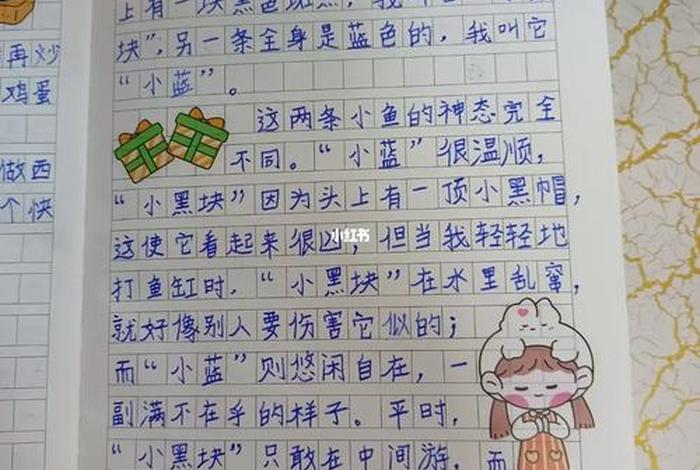 上有一块黑色斑点，我
块”，另一条全身是蓝色的，我叫它
“小蓝”。
这两条小鱼的神态完全
不同。“小蓝”很温顺，
“小黑块”因为头上有一顶小黑帽，
这使它看起来很凶，但当我轻轻地
打鱼缸时，“小黑块”在水里乱窜，
就好像别人要伤害它似的；
而“小蓝”则悠闲自在，一
副满不在乎的样子。平时，
“小黑块”只敢在中间游，而
再炒
鸡蛋
做西
个快
小红书